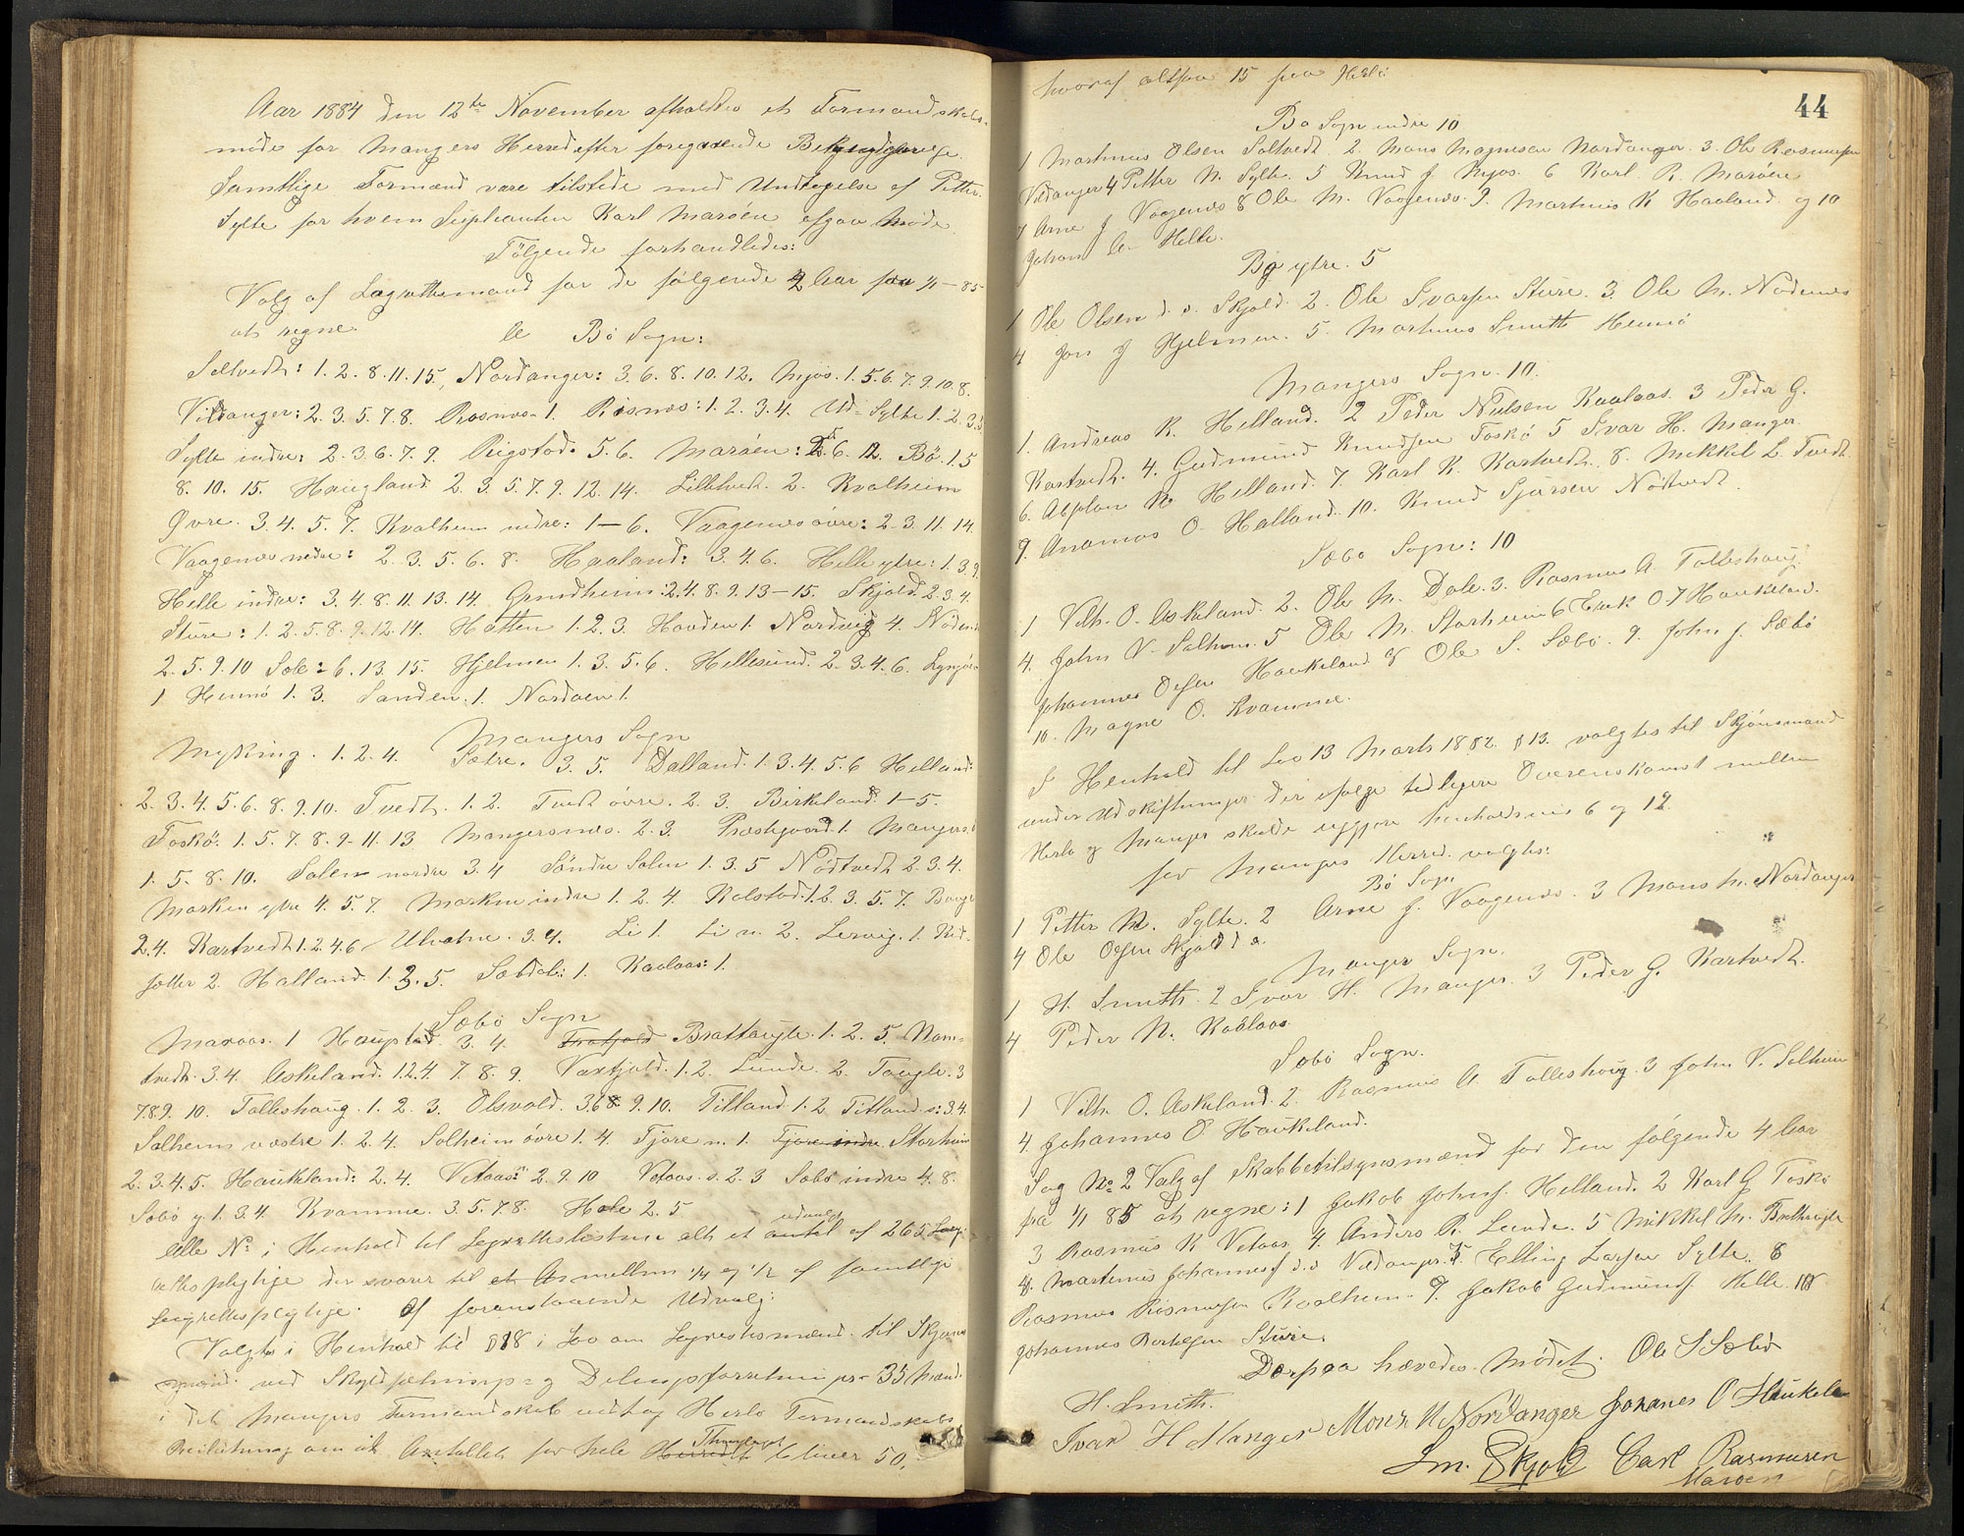 Aar 1884 den 12te November afholdtes et Formandskabs-
møde for Mangers Herred efter foregaaende Bekjendtgjørelse.
Samtlige Formænd vare tilstede med Undtagelse af Petter
Sylte for hvem Supleanten Karl Marøen afgav Møde.
Følgende forhandledes:
Valg af Lagrettemænd for de følgende 2 Aar fra 1/1-85
at regne.
Bø Sogn:
Soltvedt: 1. 2. 8. 11. 15, Nordanger: 3. 6. 8. 10. 12. Mjøs. 1. 5. 6. 7. 9. 10. 8.
Vildanger: 2. 3. 5. 7. 8. Rosnes 1. Risnes: 1. 2. 3. 4. Ud-Sylte 1. 2. 3.
Sylte indre: 2. 3. 6. 7. 9. Rigstad. 5. 6. Marøen: 6. 12. Bø. 1. 5
8. 10. 15. Haugland. 2. 3. 5. 7. 9. 12. 14. Lilletvedt. 2. Kvalheim
Øvre. 3. 4. 5. 7. Kvalheim nedre: 1-6. Vaagenes øvre: 2. 3. 11. 14.
Vaagenes nedre: 2. 3. 5. 6. 8. Haaland: 3. 4. 6. Helle ytre: 1. 3. 9.
Helle indre: 3. 4. 8. 11. 13. 14. Grindheim: 2. 4. 8. 9. 13-15. Skjold. 2. 3. 4.
Sture: 1. 2. 5. 8. 9. 12. 14. Hatten 1. 2. 3. Houden 1. Nordvig 4.
2. 5. 9. 10 Sole: 6. 13. 15. Hjelmen 1. 3. 5. 6. Hellesund. 2. 3. 4. 6.
1 Hernø 1. 3. Sanden. 1. Nordøen 1.
Mangers Sogn
Myking. 1. 2. 4. Sætre. 3. 5. Dalland. 1. 3. 4. 5. 6 Helland:
2. 3. 4. 5. 6. 8. 9. 10. Tvedt. 1. 2. Tvedt øvre. 2. 3. Birkeland. 1-5.
Toskø. 1. 5. 7. 8. 9. 11. 13 Mangersnes. 2. 3. Præstegaard. 1
1. 5. 8. 10. Solem nordre 3. 4 Søndre Solem 1. 3. 5 Nøttvedt 2. 3. 4.
Marken ytre 4. 5. 7. Marken indre 1. 2. 4. Rolstad. 1. 2. 3. 5. 7.
2. 4. Kartvedt 1. 2. 4. 6 Ulvatne. 3. 4. Li 1. Li n. 2. Lervig. 1.
2. Halland. 1. 3. 5. Sæbdal: 1. Kaalaas: 1.
Sæbø Sogn
Maraas. 1 Haugstad. 3. 4. Brattaugle. 1. 2. 5. Nam-
tvedt. 3. 4. Askeland. 1. 2. 4. 7. 8. 9. Vaxfjold. 1. 2. Lunde. 2. Taugle. 3
7 8 9. 10. Tolleshaug. 1. 2. 3. Olsvold. 3. 6. 8. 9. 10. Titland. 1. 2. Titland s: 3. 4.
Solheim vestre 1. 2. 4. Solheim øvre 1. 4. Fjøre n. 1. Fjøre indre Storheim
2. 3. 4. 5. Haukeland: 2. 4. Vetaas: 2. 9. 10 Vetaas. s. 2. 3 Sæbø indre 4. 8.
Sæbø y. 1. 3. 4. Kvamme. 3. 5. 7. 8. Hole 2. 5
udvalgt
alle No i Henhold til Legrettelisterne alt et antal af 265
rettespligtige der svarer til mellem 1/4 og 1/2 af samtlige
Legrettespligtige. Af foranstaaende Udvalg:
Valgtes i Henhold til §18 i Lov om Lagrettesmænd til Skjøns-
mænd ved Skyldsætnings- og Delingsforretninger 35 Mand
i det Mangers Formandskab vedtog Herlø Formandskabs
Beslutning om at Antallet for hele Herredet Thinglaget bliver 50,
hvoraf altsaa 15 paa Herlø
44
Bø Sogn indre 10
1 Martinus Olsen Soltvedt 2. Mons Magnesen Nordanger. 3. Ole Rasmusen
Vildanger 4 Petter N. Sylte. 5 Knud J Mjøs. 6 Karl R. Marøen
7 Arne J Vaagenes 8 Ole M. Vaagenes. 9. Martinus K Haaland og 10
Johan A. Helle.
Bø ytre. 5
1 Ole Olsen d. o. Skjold. 2. Ole Ivarsen Sture. 3. Ole M. Nødenes
4 Jon J Hjelmen. 5. Martinus Smith Hernø
Mangers Sogn. 10.
1. Andreas K. Helland. 2 Peder Nielsen Kaalaas. 3 Peder G.
Kartvedt. 4. Gudmund Knudsen Toskø 5 Ivar H. Manger.
6. N Helland. 7. Karl K. Kartvedt. 8. Mikkel L. Tvedt.
9. Ananias O. Halland. 10. Knud Sjursen Nøttvedt.
Sæbø Sogn: 10
1 Vilh. O. Askeland. 2. Ole M. Dale. 3. Rasmus A. Tolleshaug.
4. John V. Solheim. 5 Ole M. Storheim 6 Erik O. 7 Haukeland.
Johannes Olsen Haukeland 8 Ole S. Sæbø. 9. John J. Sæbø
10. Magne O. Kvamme.
I Henhold til Lov 13 Marts 1882 §13. valgtes til Skjønsmænd
under Udskiftninger der ifølge tidligere Overenskomst mellem
Herlø og Manger skulde udgjøre henholdsvis 6 og 12.
for Mangers Herred valgtes:
Bø Sogn
1 Petter N. Sylte. 2 Arne J. Vaagenes. 3 Mons M. Nordanger
4 Ole Olsen Skjold d. o.
Manger Sogn.
1 H. Smith. 2 Ivar H. Manger. 3 Peder G. Kartvedt.
4 Peder N. Kaalaas.
Sæbø Sogn.
1 Vilh. O. Askeland. 2. Rasmus A Tolleshaug. 3 John V. Solheim
4. Johannes O. Haukeland.
Sag No 2 Valg af Skabbetilsynsmænd for den følgende 4 Aar
fra 1/1 85 at regne: 1 Jakob Johns. Helland. 2 Karl G Toskø
3 Rasmus K Vetaas 4. Anders R. Lunde. 5 Mikkel M. Brattaugle
6. Martinus Johannes d. o. Vildanger. 7. Elling Larsen Sylte. 8
Rasmus Rasmusen Kvalheim. 9. Jakob Gudmunds. Helle 10
Johannes Bertelsen Sture.
Derpaa hævedes Mødet. Ole S Sæbø
H. Smith.
Ivar H Manger Mons M Nordanger Johanes O Haukeland
Skjold Carl Rasmusen
Marøen